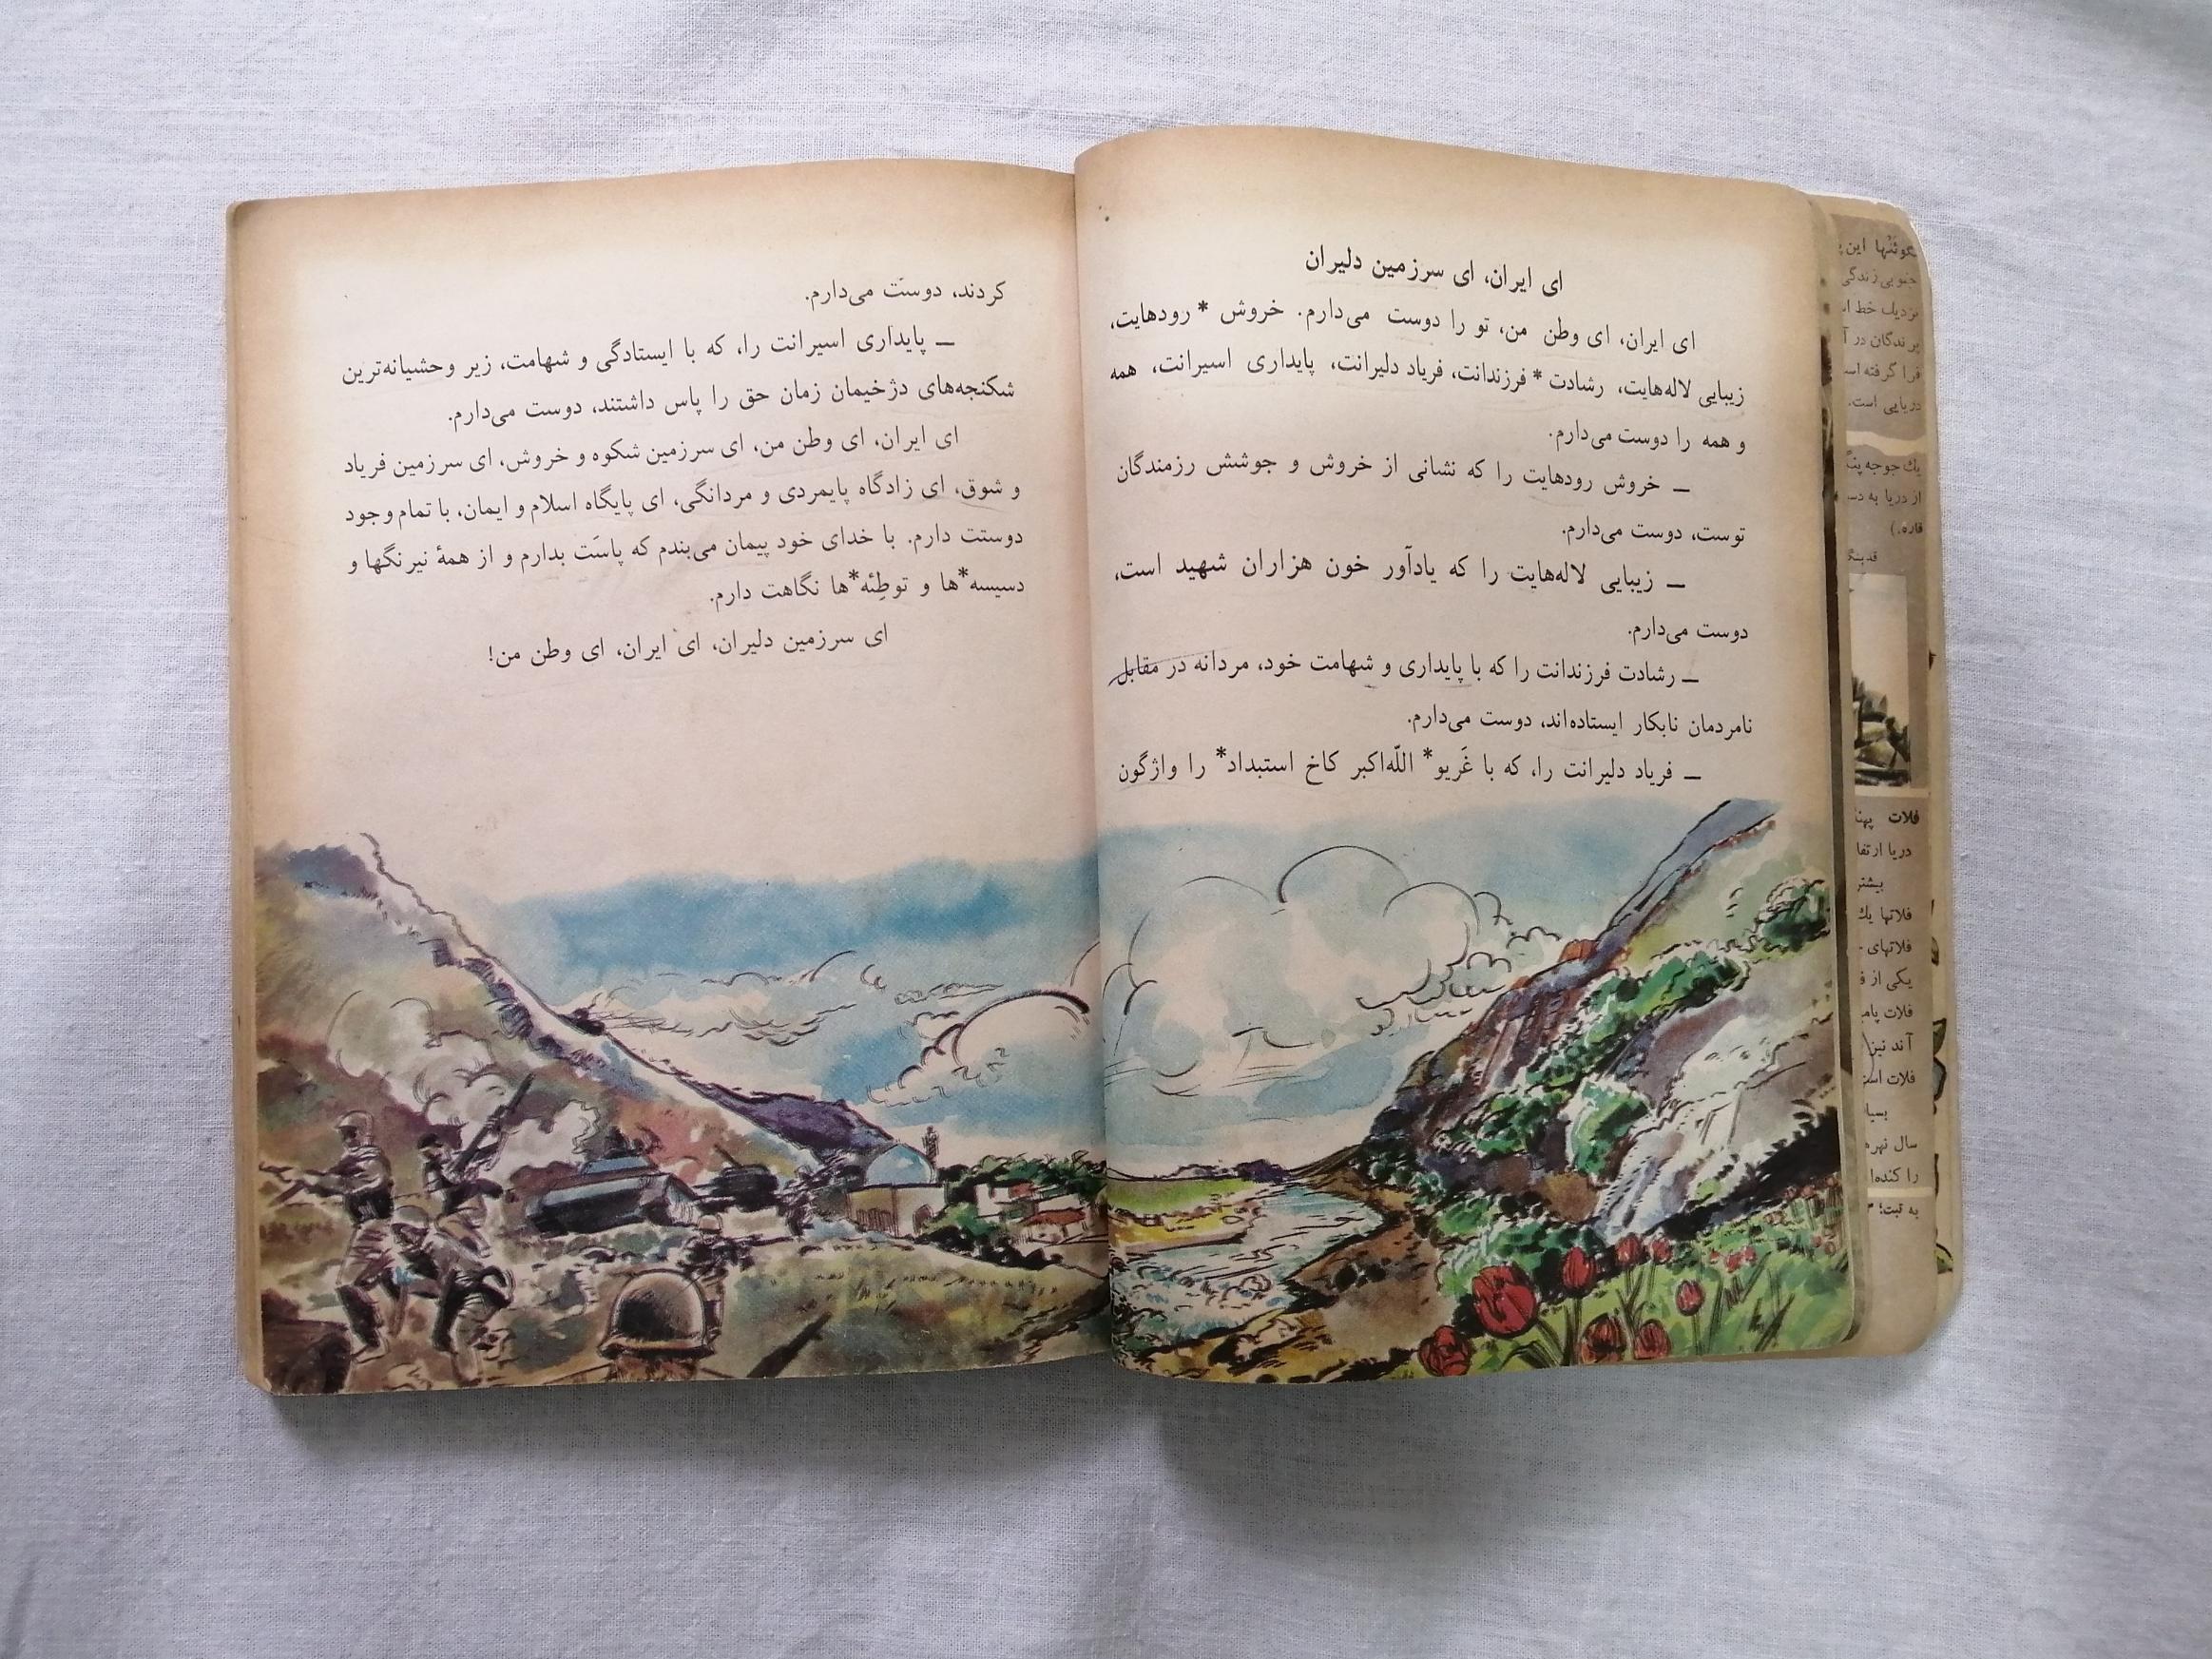 ای ایران، ای سرزمین دلیران
ای ایران، ای وطن من، تو را دوست می‌دارم. خروش * رودهایت،
زیبایی لاله‌هایت، رشادت * فرزندانت، فریاد دلیرانت، پایداری اسیرانت، همه
و همه را دوست می‌دارم.
– خروش رودهایت را که نشانی از خروش و جوشش رزمندگان
توست، دوست می‌دارم.
– زیبایی لاله‌هایت را که یادآور خون هزاران شهید است،
دوست می‌دارم.
– رشادت فرزندانت را که با پایداری و شهامت خود، مردانه در مقابل
نامردمان نابکار ایستاده‌اند، دوست می‌دارم.
– فریاد دلیرانت را، که با غَریو* اللّه‌اکبر کاخ استبداد* را واژگون
کردند، دوست می‌دارم.
– پایداری اسیرانت را، که با ایستادگی و شهامت، زیر وحشیانه‌ترین
شکنجه‌های دژخیمان زمان حق را پاس داشتند، دوست می‌دارم.
ای ایران، ای وطن من، ای سرزمین شکوه و خروش، ای سرزمین فریاد
و شوق، ای زادگاه پایمردی و مردانگی، ای پایگاه اسلام و ایمان، با تمام وجود
دوستت دارم. با خدای خود پیمان می‌بندم که پاسَت بدارم و از همهٔ نیرنگها و
دسیسه*ها و توطِئه*ها نگاهت دارم.
ای سرزمین دلیران، ای ایران، ای وطن من!
این
جنوبی زندگی
نزدیك خط
پرندگان در
فرا گرفته
دریایی است.
یك جوجه
از دریا به
قاره.)
فلات
دریا
بیشتر
فلاتها یك
فلاتهای
یکی از
فلات
آند نیز
فلات
سال
را
به تبت؛